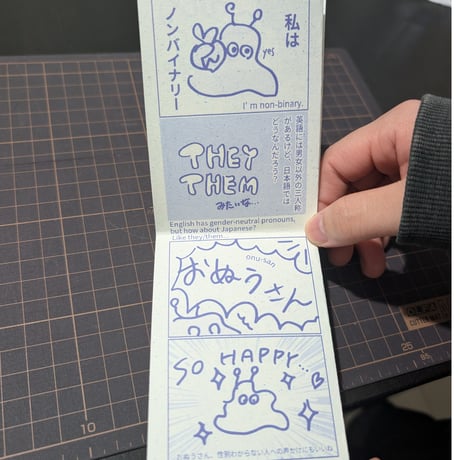 私は
ノンバイナリー
yes
I' m non-binary.
英語には男女以外の三人称
があるけど、日本語では
どうなんだろう？
THEY
THEM
みたいな…
English has gender-neutral pronouns,
but how about Japanese?
Like they/them...
onu-san
おぬうさん
SO HAPPY...
おぬうさん、性別わからない人への声かけにもいいね
10
25